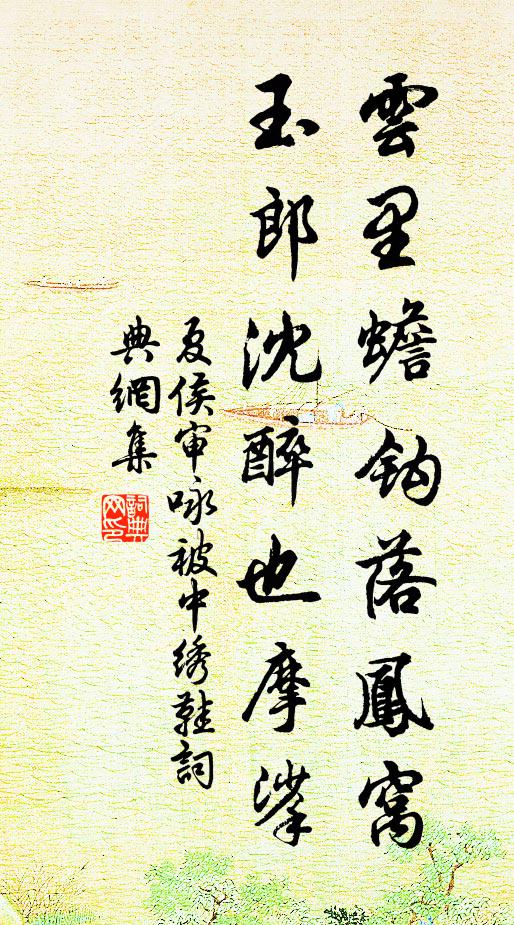 雲里蟾鈎落鳳窩
玉郎沈醉也摩挲
夏侯审咏被中绣鞋詞
典網集
詞典网印